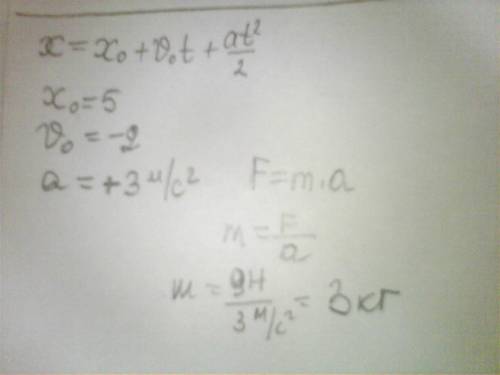 x = x₀ + v₀t + at²/2
x₀ = 5
v₀ = -2
a = +3 м/с² F = m · a
m = F/a
m = 9Н/3 м/с² = 3 кг